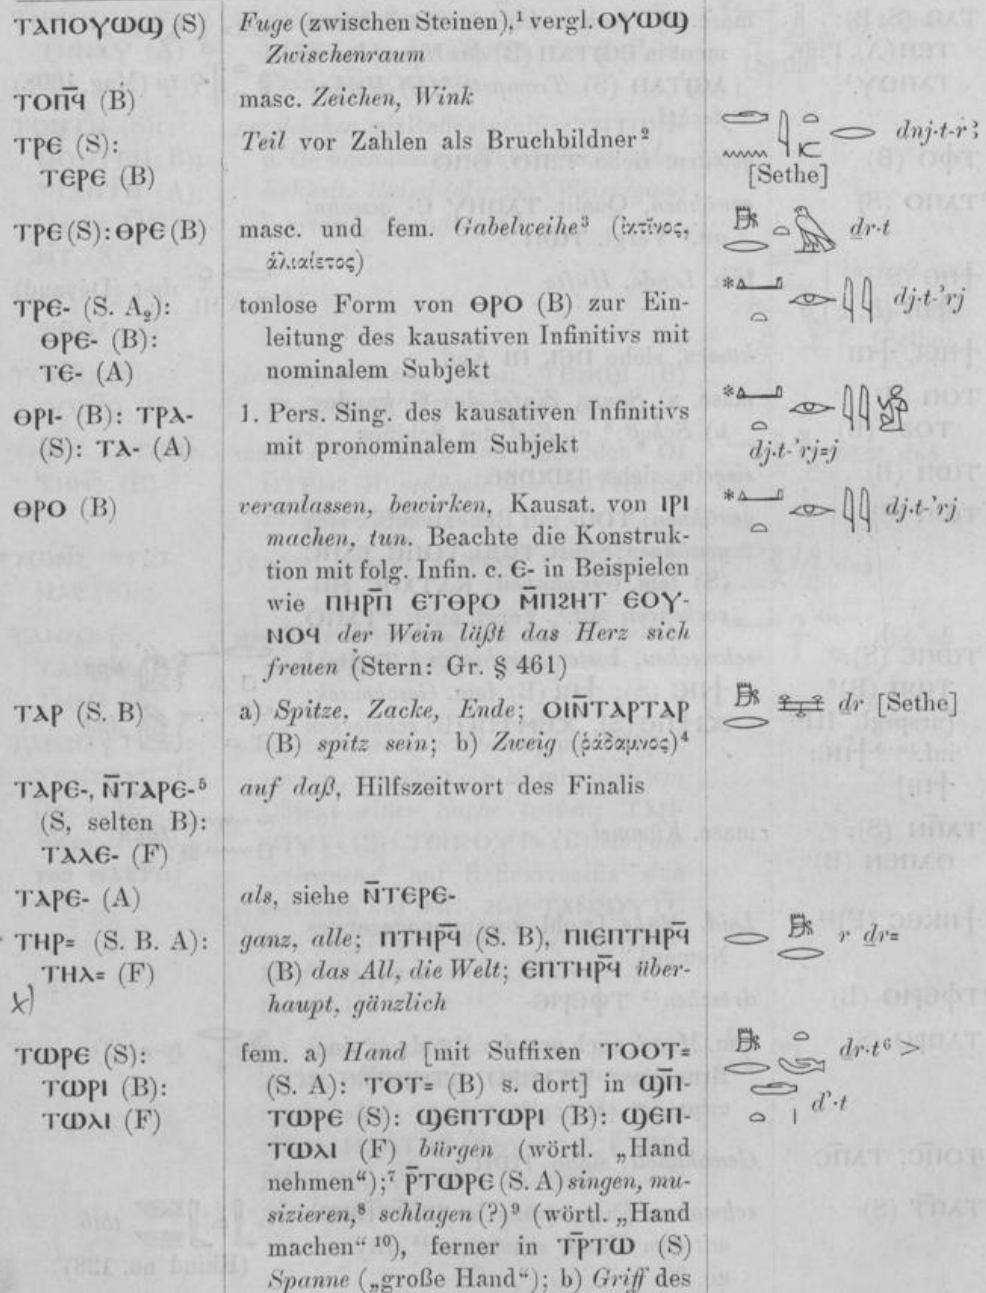 ⲧⲁⲡⲟⲩⲱϣ (S) Fuge (zwischen Steinen),¹ vergl. ⲟⲩⲱϣ
Zwischenraum
ⲧⲟⲡ̅ϥ (B) masc. Zeichen, Wink
ⲧⲣⲉ (S): Teil vor Zahlen als Bruchbildner² dnj·t-rꜣ
ⲧⲉⲣⲉ (B) [Sethe]
ⲧⲣⲉ (S): ⲑⲣⲉ (B) masc. und fem. Gabelweihe³ (ἰκτῖνος, ḏr·t
ἁλιαίετος)
ⲧⲣⲉ- (S. A₂): tonlose Form von ⲑⲣⲟ (B) zur Ein- dj·t-ʾrj
ⲑⲣⲉ- (B): leitung des kausativen Infinitivs mit
ⲧⲉ- (A) nominalem Subjekt
ⲑⲣⲓ- (B): ⲧⲣⲁ- 1. Pers. Sing. des kausativen Infinitivs
(S): ⲧⲁ- (A) mit pronominalem Subjekt dj.t-ʾrj=j
ⲑⲣⲟ (B) veranlassen, bewirken, Kausat. von ⲓⲣⲓ dj·t-ʾrj
machen, tun. Beachte die Konstruk-
tion mit folg. Infin. c. ⲉ- in Beispielen
wie ⲡⲏⲣⲡ̅ ⲉⲧⲑⲣⲟ ⲙ̅ⲡϩⲏⲧ ⲉⲟⲩ-
ⲛⲟϥ der Wein läßt das Herz sich
freuen (Stern: Gr. § 461)
ⲧⲁⲣ (S. B) a) Spitze, Zacke, Ende; ⲟⲓⲛ̅ⲧⲁⲣⲧⲁⲣ ḏr [Sethe]
(B) spitz sein; b) Zweig (ῥάδαμνος)⁴
ⲧⲁⲣⲉ-, ⲛ̅ⲧⲁⲣⲉ-⁵ auf daß, Hilfszeitwort des Finalis
(S, selten B):
ⲧⲁⲗⲉ- (F)
ⲧⲁⲣⲉ- (A) als, siehe ⲛ̅ⲧⲉⲣⲉ-
ⲧⲏⲣ= (S. B. A): ganz, alle; ⲡⲧⲏⲣϥ̅ (S. B), ⲡⲓⲉⲡⲧⲏⲣϥ̅ r ḏr=
ⲧⲏⲗ= (F) (B) das All, die Welt; ⲉⲡⲧⲏⲣϥ̅ über-
x) haupt, gänzlich
ⲧⲱⲣⲉ (S): fem. a) Hand [mit Suffixen ⲧⲟⲟⲧ= ḏr·t⁶ >
ⲧⲱⲣⲓ (B): (S. A): ⲧⲟⲧ= (B) s. dort] in ϣⲡ̅-
ⲧⲱⲗⲓ (F) ⲧⲱⲣⲉ (S): ϣⲉⲡⲧⲱⲣⲓ (B): ϣⲉⲡ- dʾ·t
ⲧⲱⲗⲓ (F) bürgen (wörtl. „Hand
nehmen“);⁷ ⲣ̅ⲧⲱⲣⲉ (S. A) singen, mu-
sizieren,⁸ schlagen (?)⁹ (wörtl. „Hand
machen“ ¹⁰), ferner in ⲧⲣ̅ⲧⲱ (S)
Spanne („große Hand“); b) Griff des